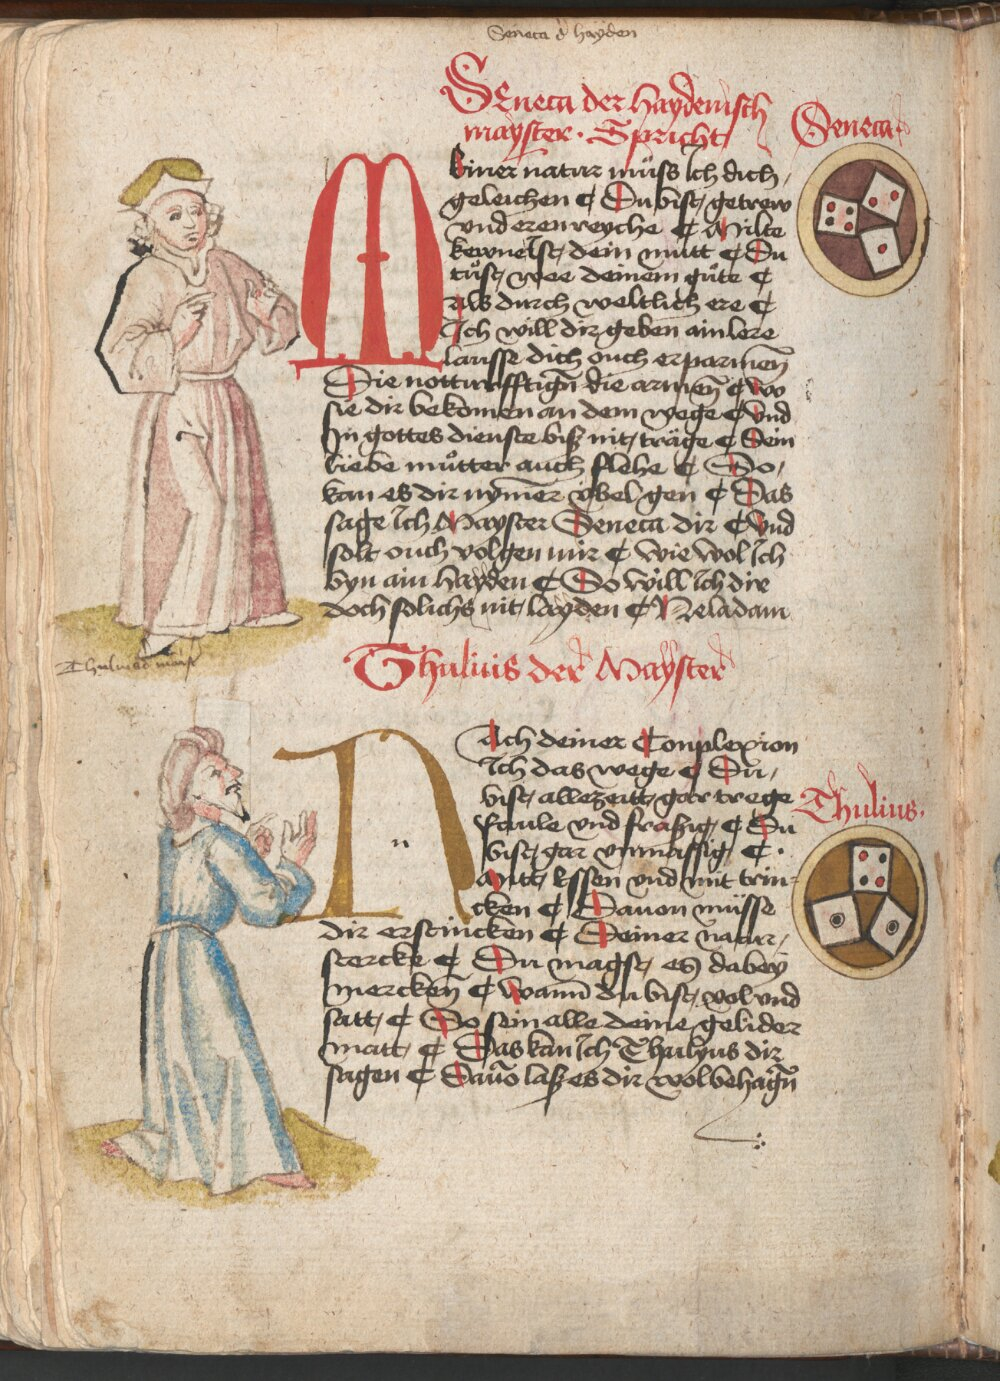 Seneca d hayden
Seneca der haydenisch
mayster · Spricht
Seneca
Meiner natur müss Ich dich
geleichen ¢ Du bist getrew
vnd erenreyche ¢ Milte
kewnelst dein mutt ¢ Du
tüst wee deinem güte ¢
als durch weltlich ere ¢
Ich will dir geben ain lere
lausse dich ouch erparmen
Die notturfftign die armen ¢ wo
sie dir bekomen an dem wege ¢ Vnd
In gottes dienste biß nit träge ¢ Dein
liebe müter auch flehe ¢ So
kan es dir nymer ybel gen ¢ Das
sage Ich Mayster Seneca dir ¢ Vnd
solt ouch volgen mir ¢ wie wol Ich
byn ain hayden ¢ So will Ich dir
doch solichs nit layden ¢ Neladam
Thulius der Mayster
Nach deiner Conplexion
Ich das wege ¢ Du
bist allezeitt gar trege
faule vnd fraßig ¢ Du
bist gar vnmässig ¢
Mitt Essen vnd mit trin-
cken ¢ Dauon müsse
Thulius.
dir erstincken ¢ Deiner natur
stercke ¢ Du magst es dabey
mercken ¢ wann du bist vol vnd
satt ¢ So sein alle deine gelider
matt ¢ Das kan Ich Thulyus dir
sagen ¢ Dauo laß es dir wol behagn